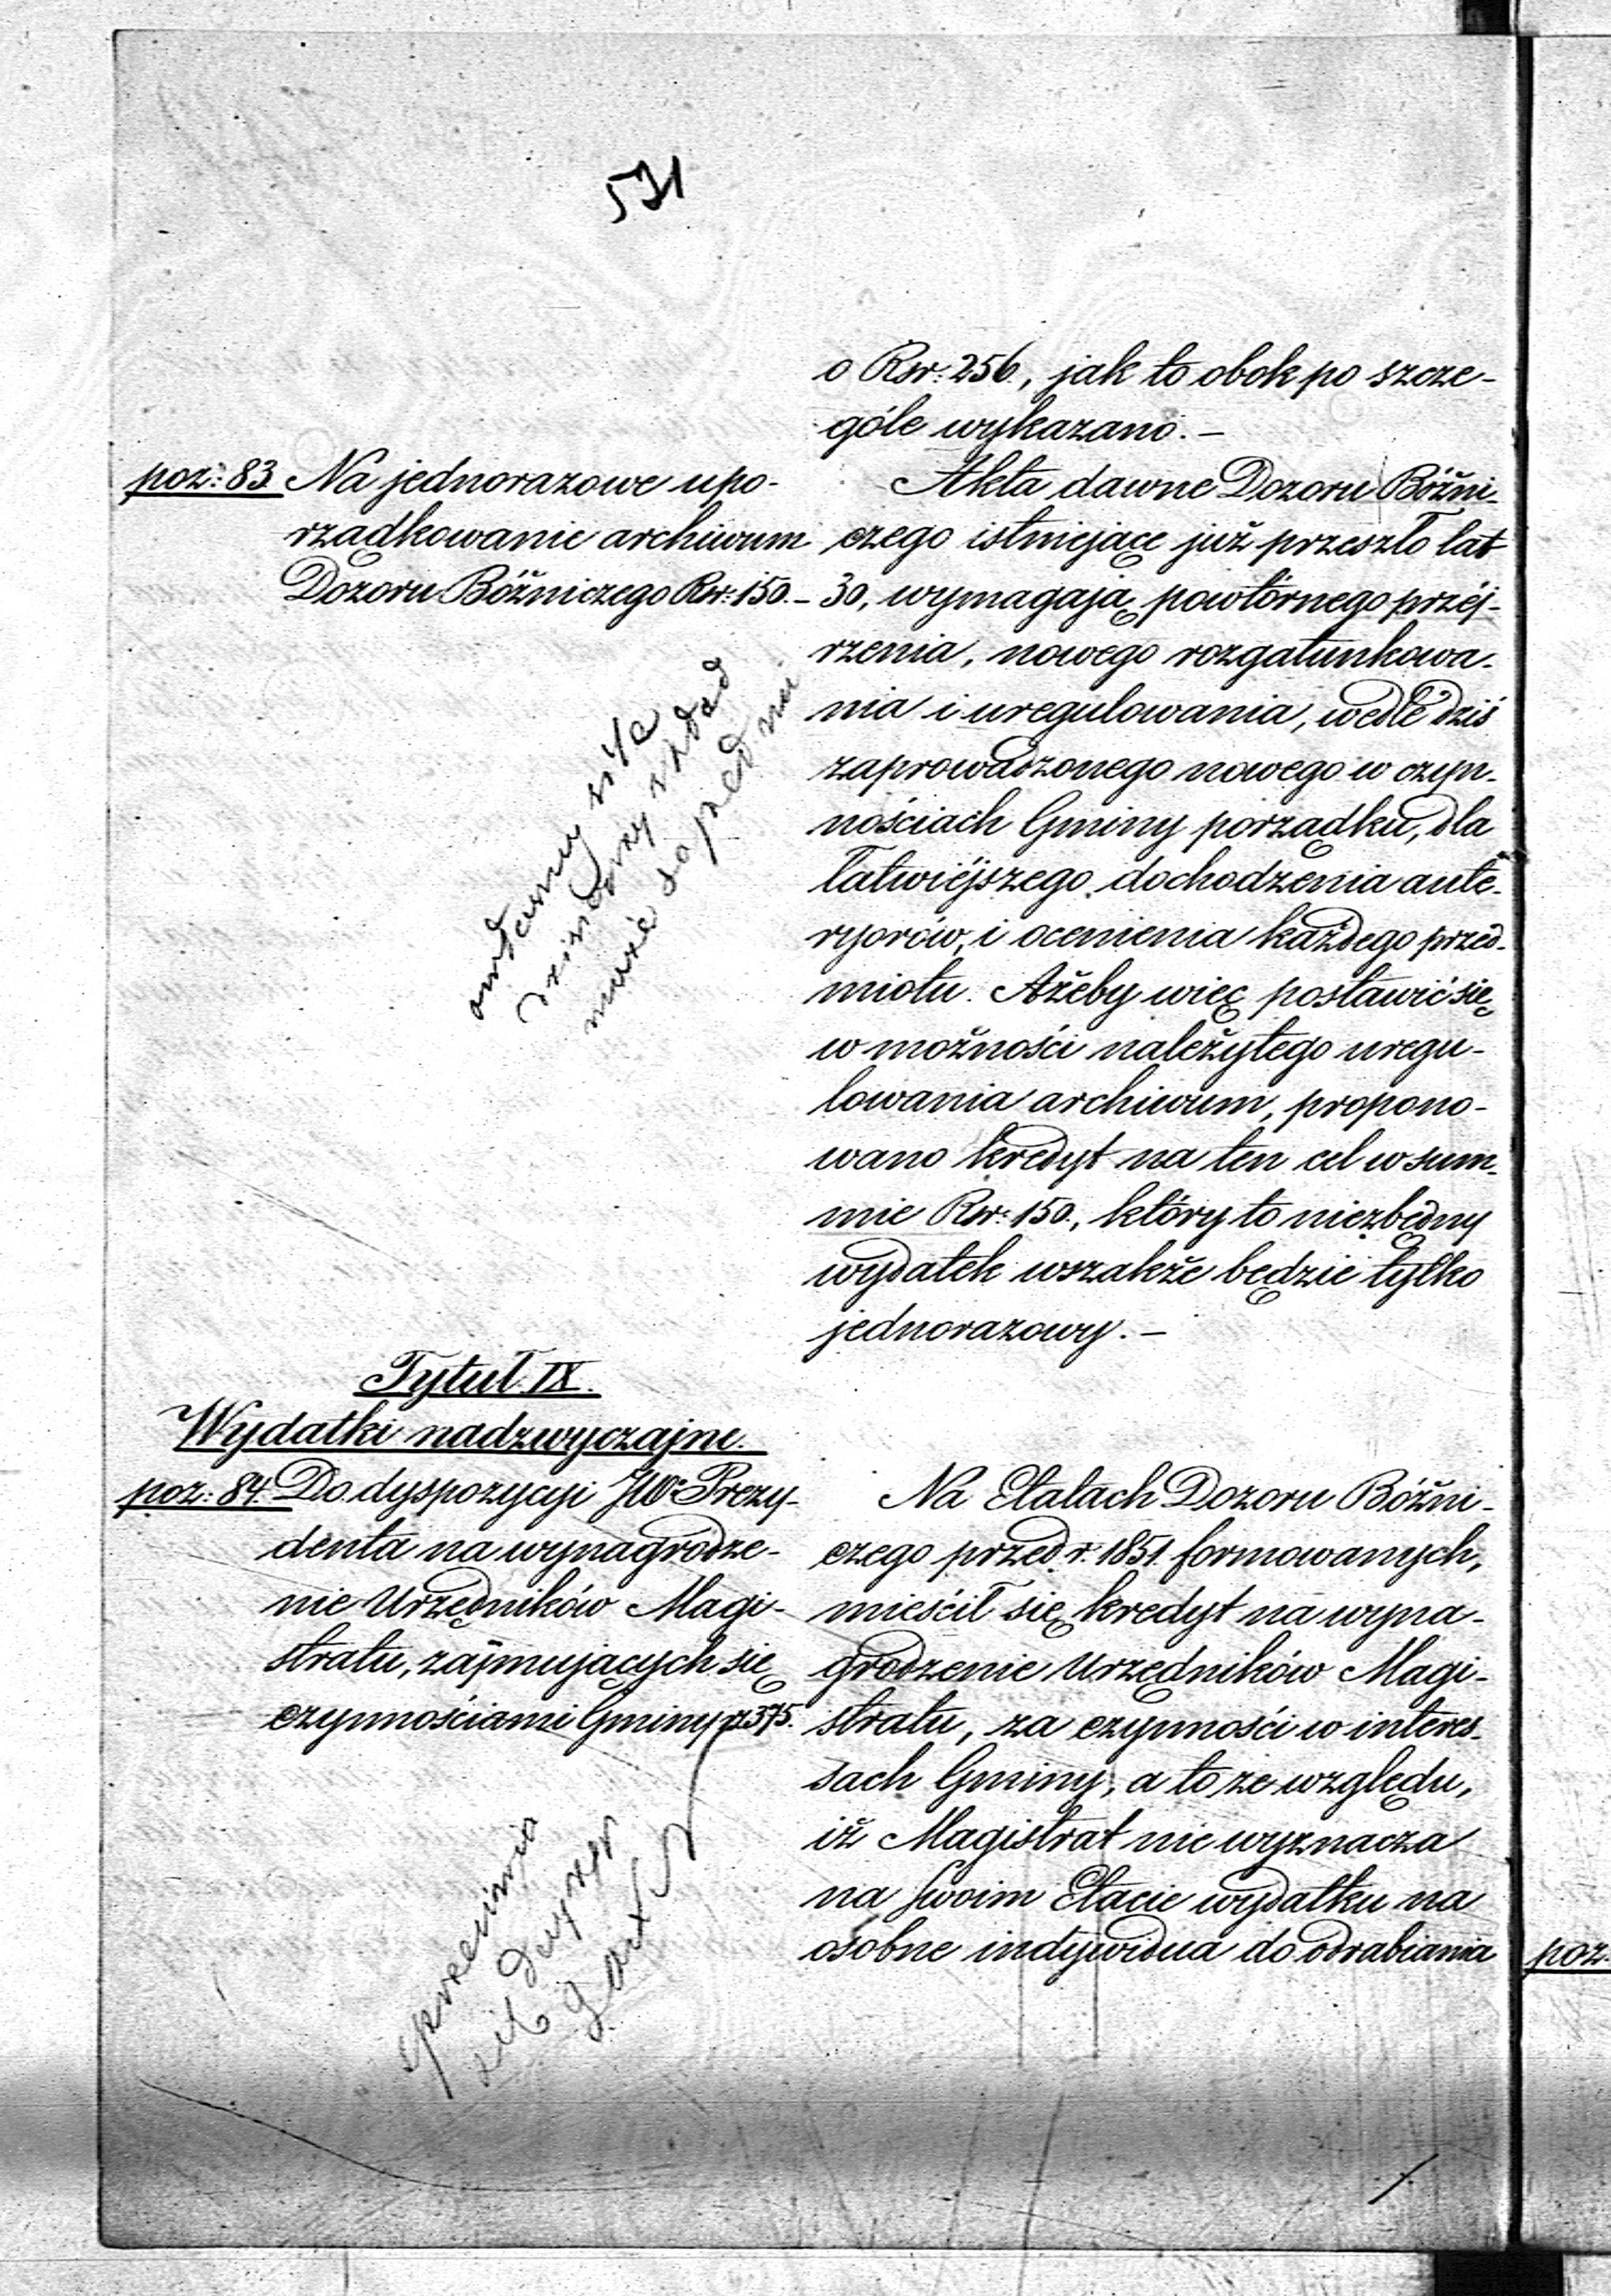 531
o Rsr: 256., jak to obok po szcze-
góle wykazano. –
poz: 83. Na jednorazowe upo-
rządkowanie archiwum
Dozoru Bóżniczego Rsr: 150. –
Akta dawne Dozoru Bóżni-
czego istniejące już przeszło lat
30, wymagają powtórnego przéj-
rzenia, nowego rozgatunkowa-
nia i uregulowania, wedle dziś
zaprowadzonego nowego w czyn-
nościach Gminy porządku, dla
łatwiéjszego dochodzenia ante-
ryorów, i ocenienia każdego przed-
miotu. Ażeby więc postawić się
w możności należytego uregu-
lowania archiwum, propono-
wano kredyt na ten cel w sum-
mie Rsr: 150., który to niezbędny
wydatek wszakże będzie tylko
jednorazowy. –
Tytuł IX.
Wydatki nadzwyczajne.
poz: 84. Do dyspozycyi JWo Prezy-
denta na wynagrodze-
nie Urzędników Magi-
stratu, zajmujących się
czynnościami Gminy 375.
Na Etatach Dozoru Bóżni-
czego przed r. 1851. formowanych,
mieścił się kredyt na wyna-
grodzenie Urzędników Magi-
stratu, za czynności w interes-
sach Gminy, a to ze względu,
iż Magistrat nie wyznacza
na swoim Etacie wydatku na
osobne indywidua do odrabiania
poz: